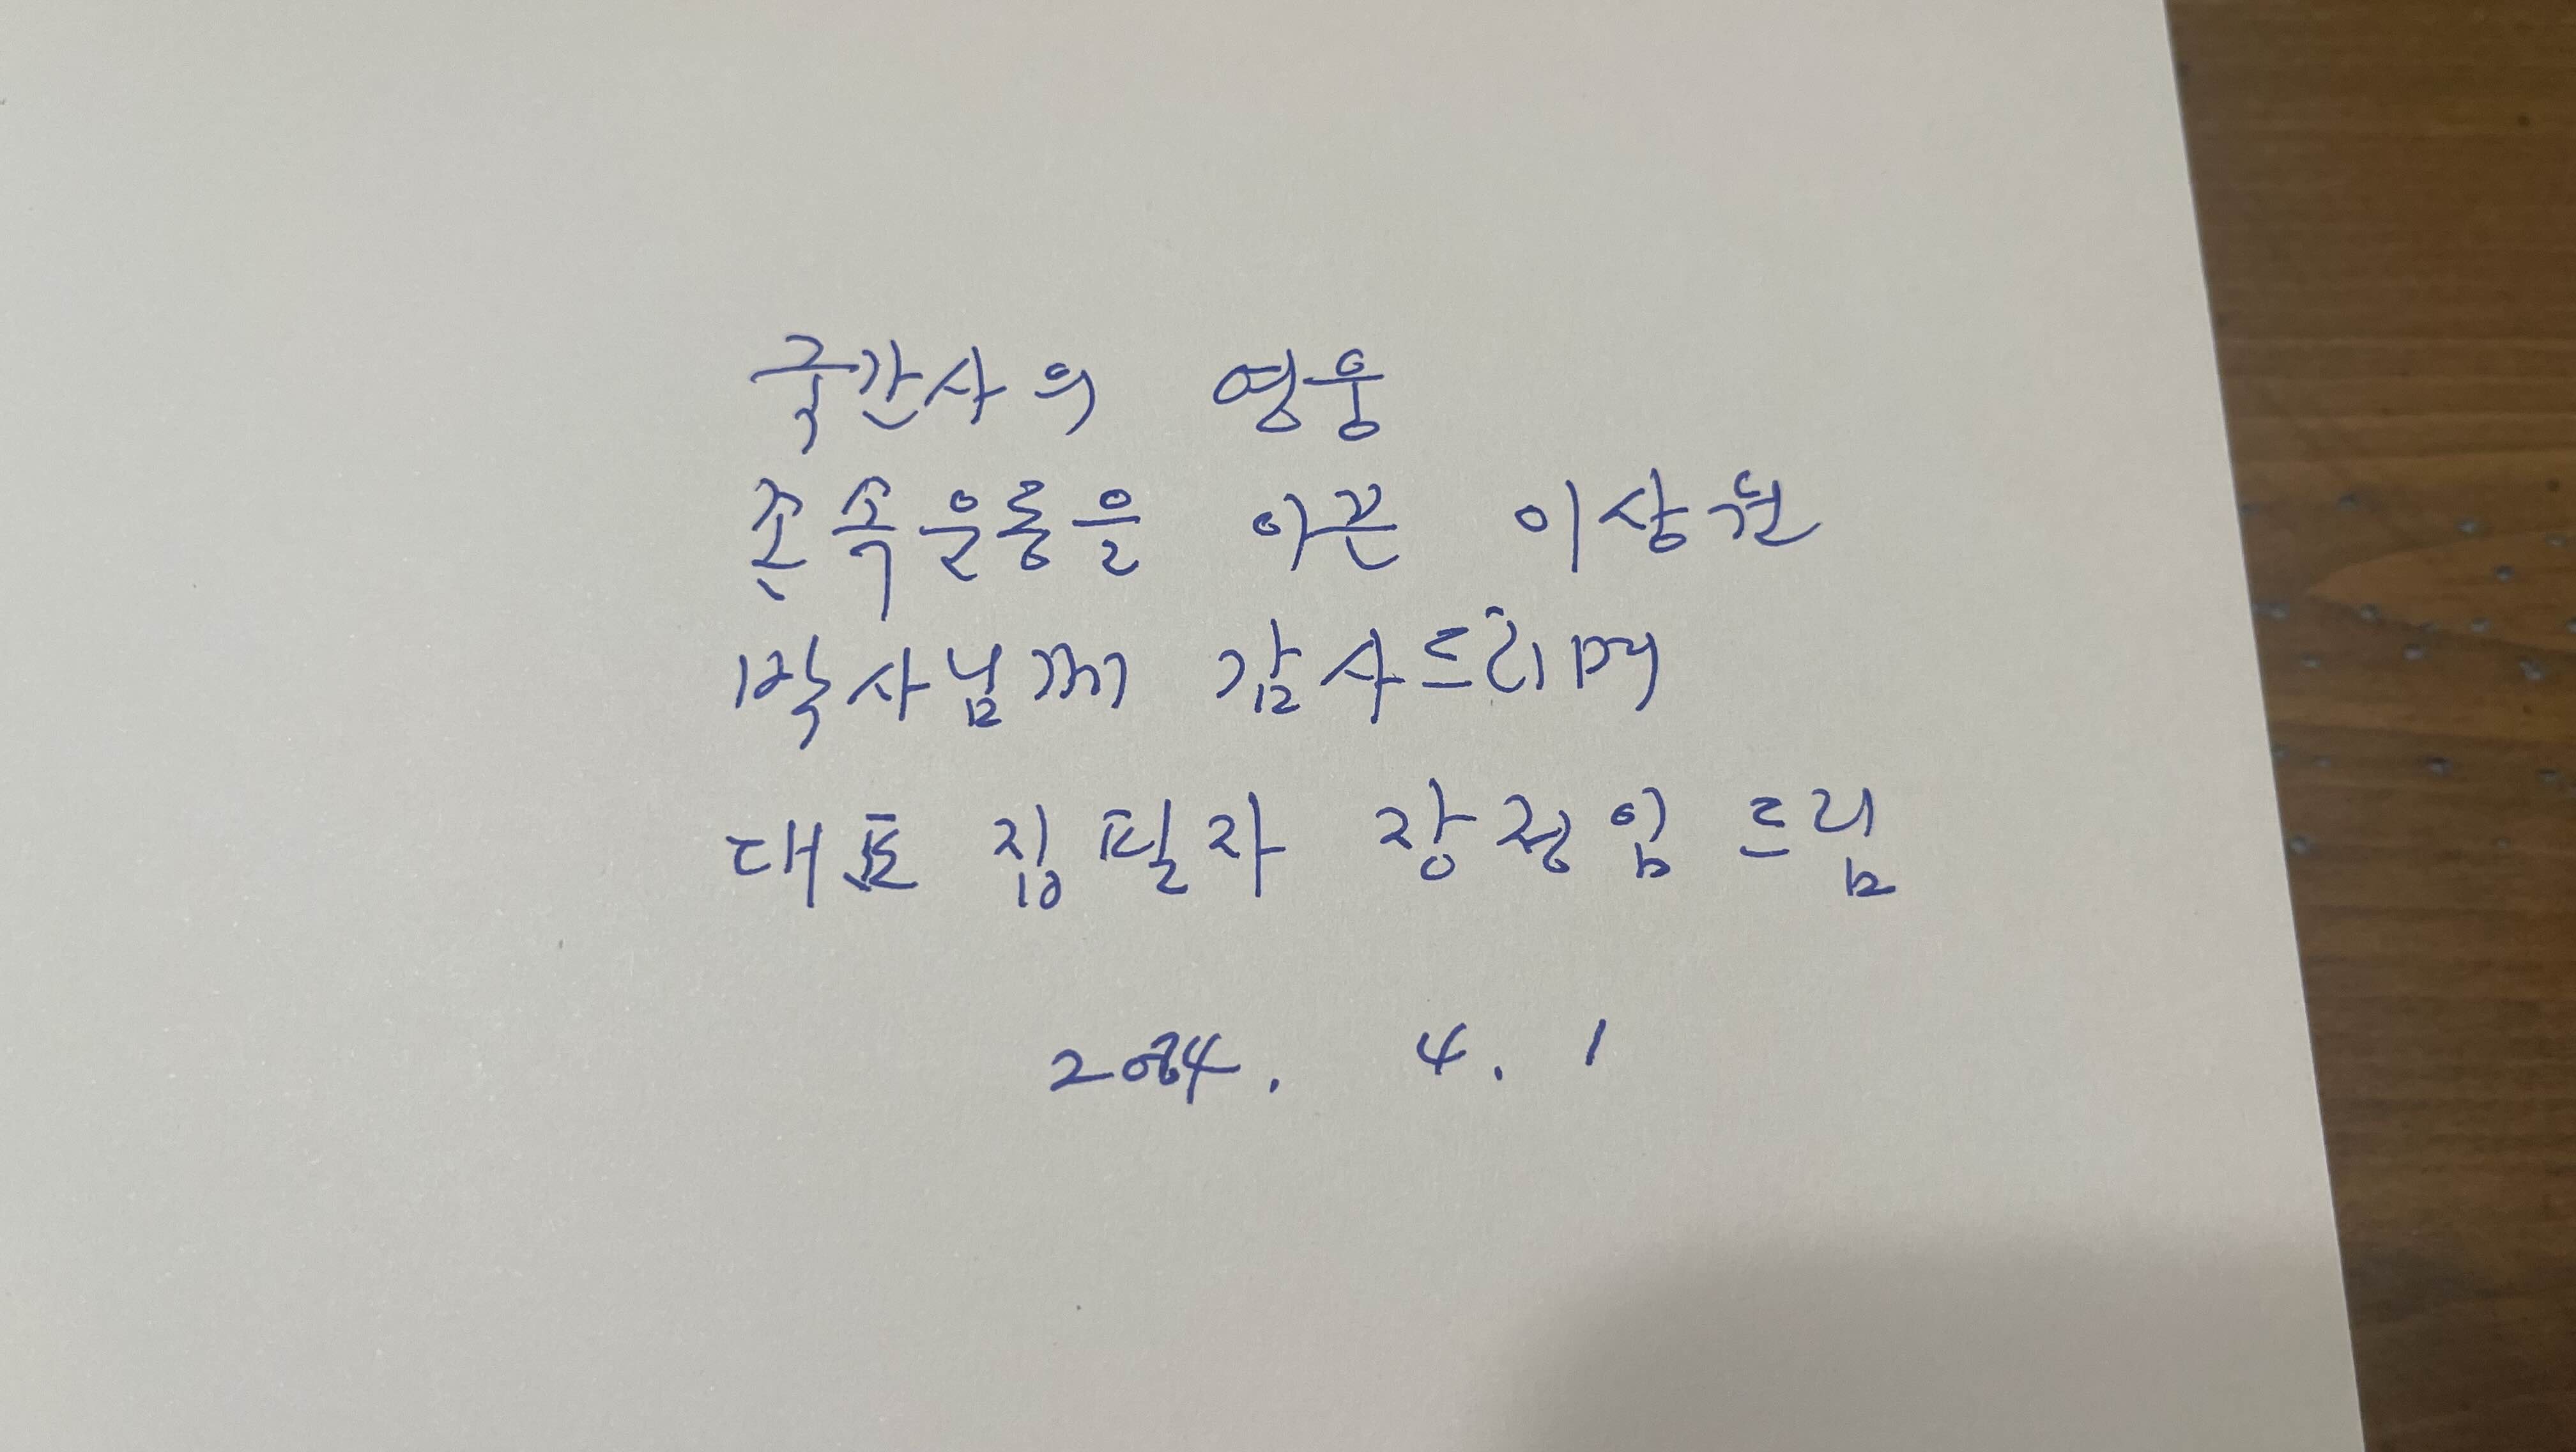 국간사의 영웅
존속운동을 이끈 이상권
박사님께 감사드리며
대표 집필자 장정임 드림
2024. 4. 1